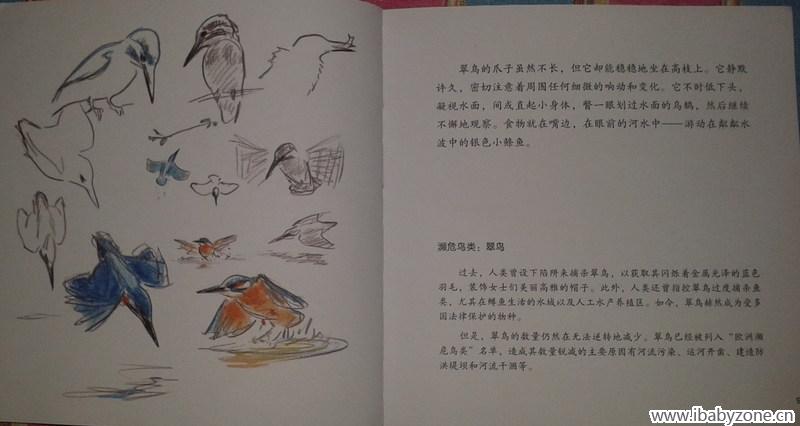 翠鸟的爪子虽然不长，但它却能稳稳地坐在高枝上。它静默
许久，密切注意着周围任何细微的响动和变化。它不时低下头，
凝视水面，间或直起小身体，瞥一眼划过水面的乌鸫，然后继续
不懈地观察。食物就在嘴边，在眼前的河水中——游动在粼粼水
波中的银色小鲦鱼。
濒危鸟类：翠鸟
过去，人类曾设下陷阱来捕杀翠鸟，以获取其闪烁着金属光泽的蓝色
羽毛，装饰女士们美丽高雅的帽子。此外，人类还曾指控翠鸟过度捕杀鱼
类，尤其在鳟鱼生活的水域以及人工水产养殖区。如今，翠鸟赫然成为受多
国法律保护的物种。
但是，翠鸟的数量仍然在无法逆转地减少。翠鸟已经被列入“欧洲濒
危鸟类”名单，造成其数量锐减的主要原因有河流污染、运河开凿、建造防
洪堤坝和河流干涸等。
www.ibabyzone.cn